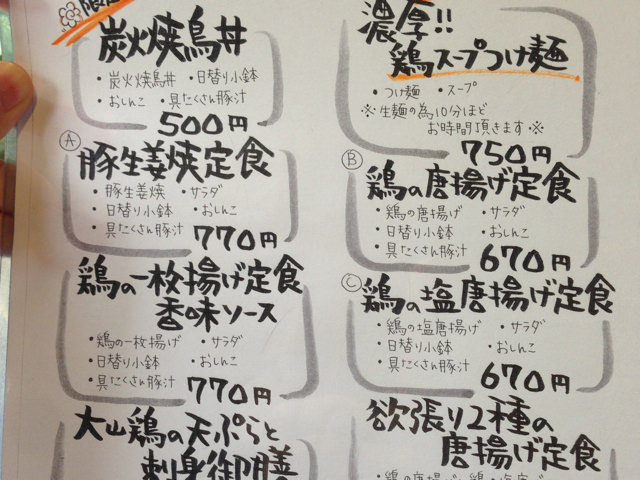 限定
炭火焼鳥丼
・炭火焼鳥丼 ・日替り小鉢
・おしんこ ・具たくさん豚汁
500円
Ⓐ
豚生姜焼定食
・豚生姜焼 ・サラダ
・日替り小鉢 ・おしんこ
・具たくさん豚汁
770円
鶏の一枚揚げ定食
香味ソース
・鶏の一枚揚げ ・サラダ
・日替り小鉢 ・おしんこ
・具たくさん豚汁
770円
大山鶏の天ぷらと
刺身御膳
濃厚!!
鶏スープつけ麺
・つけ麺 ・スープ
※生麺の為10分ほど
お時間頂きます※
750円
Ⓑ
鶏の唐揚げ定食
・鶏の唐揚げ ・サラダ
・日替り小鉢 ・おしんこ
・具たくさん豚汁
670円
Ⓒ
鶏の塩唐揚げ定食
・鶏の塩唐揚げ ・サラダ
・日替り小鉢 ・おしんこ
・具たくさん豚汁
670円
欲張り2種の
唐揚げ定食